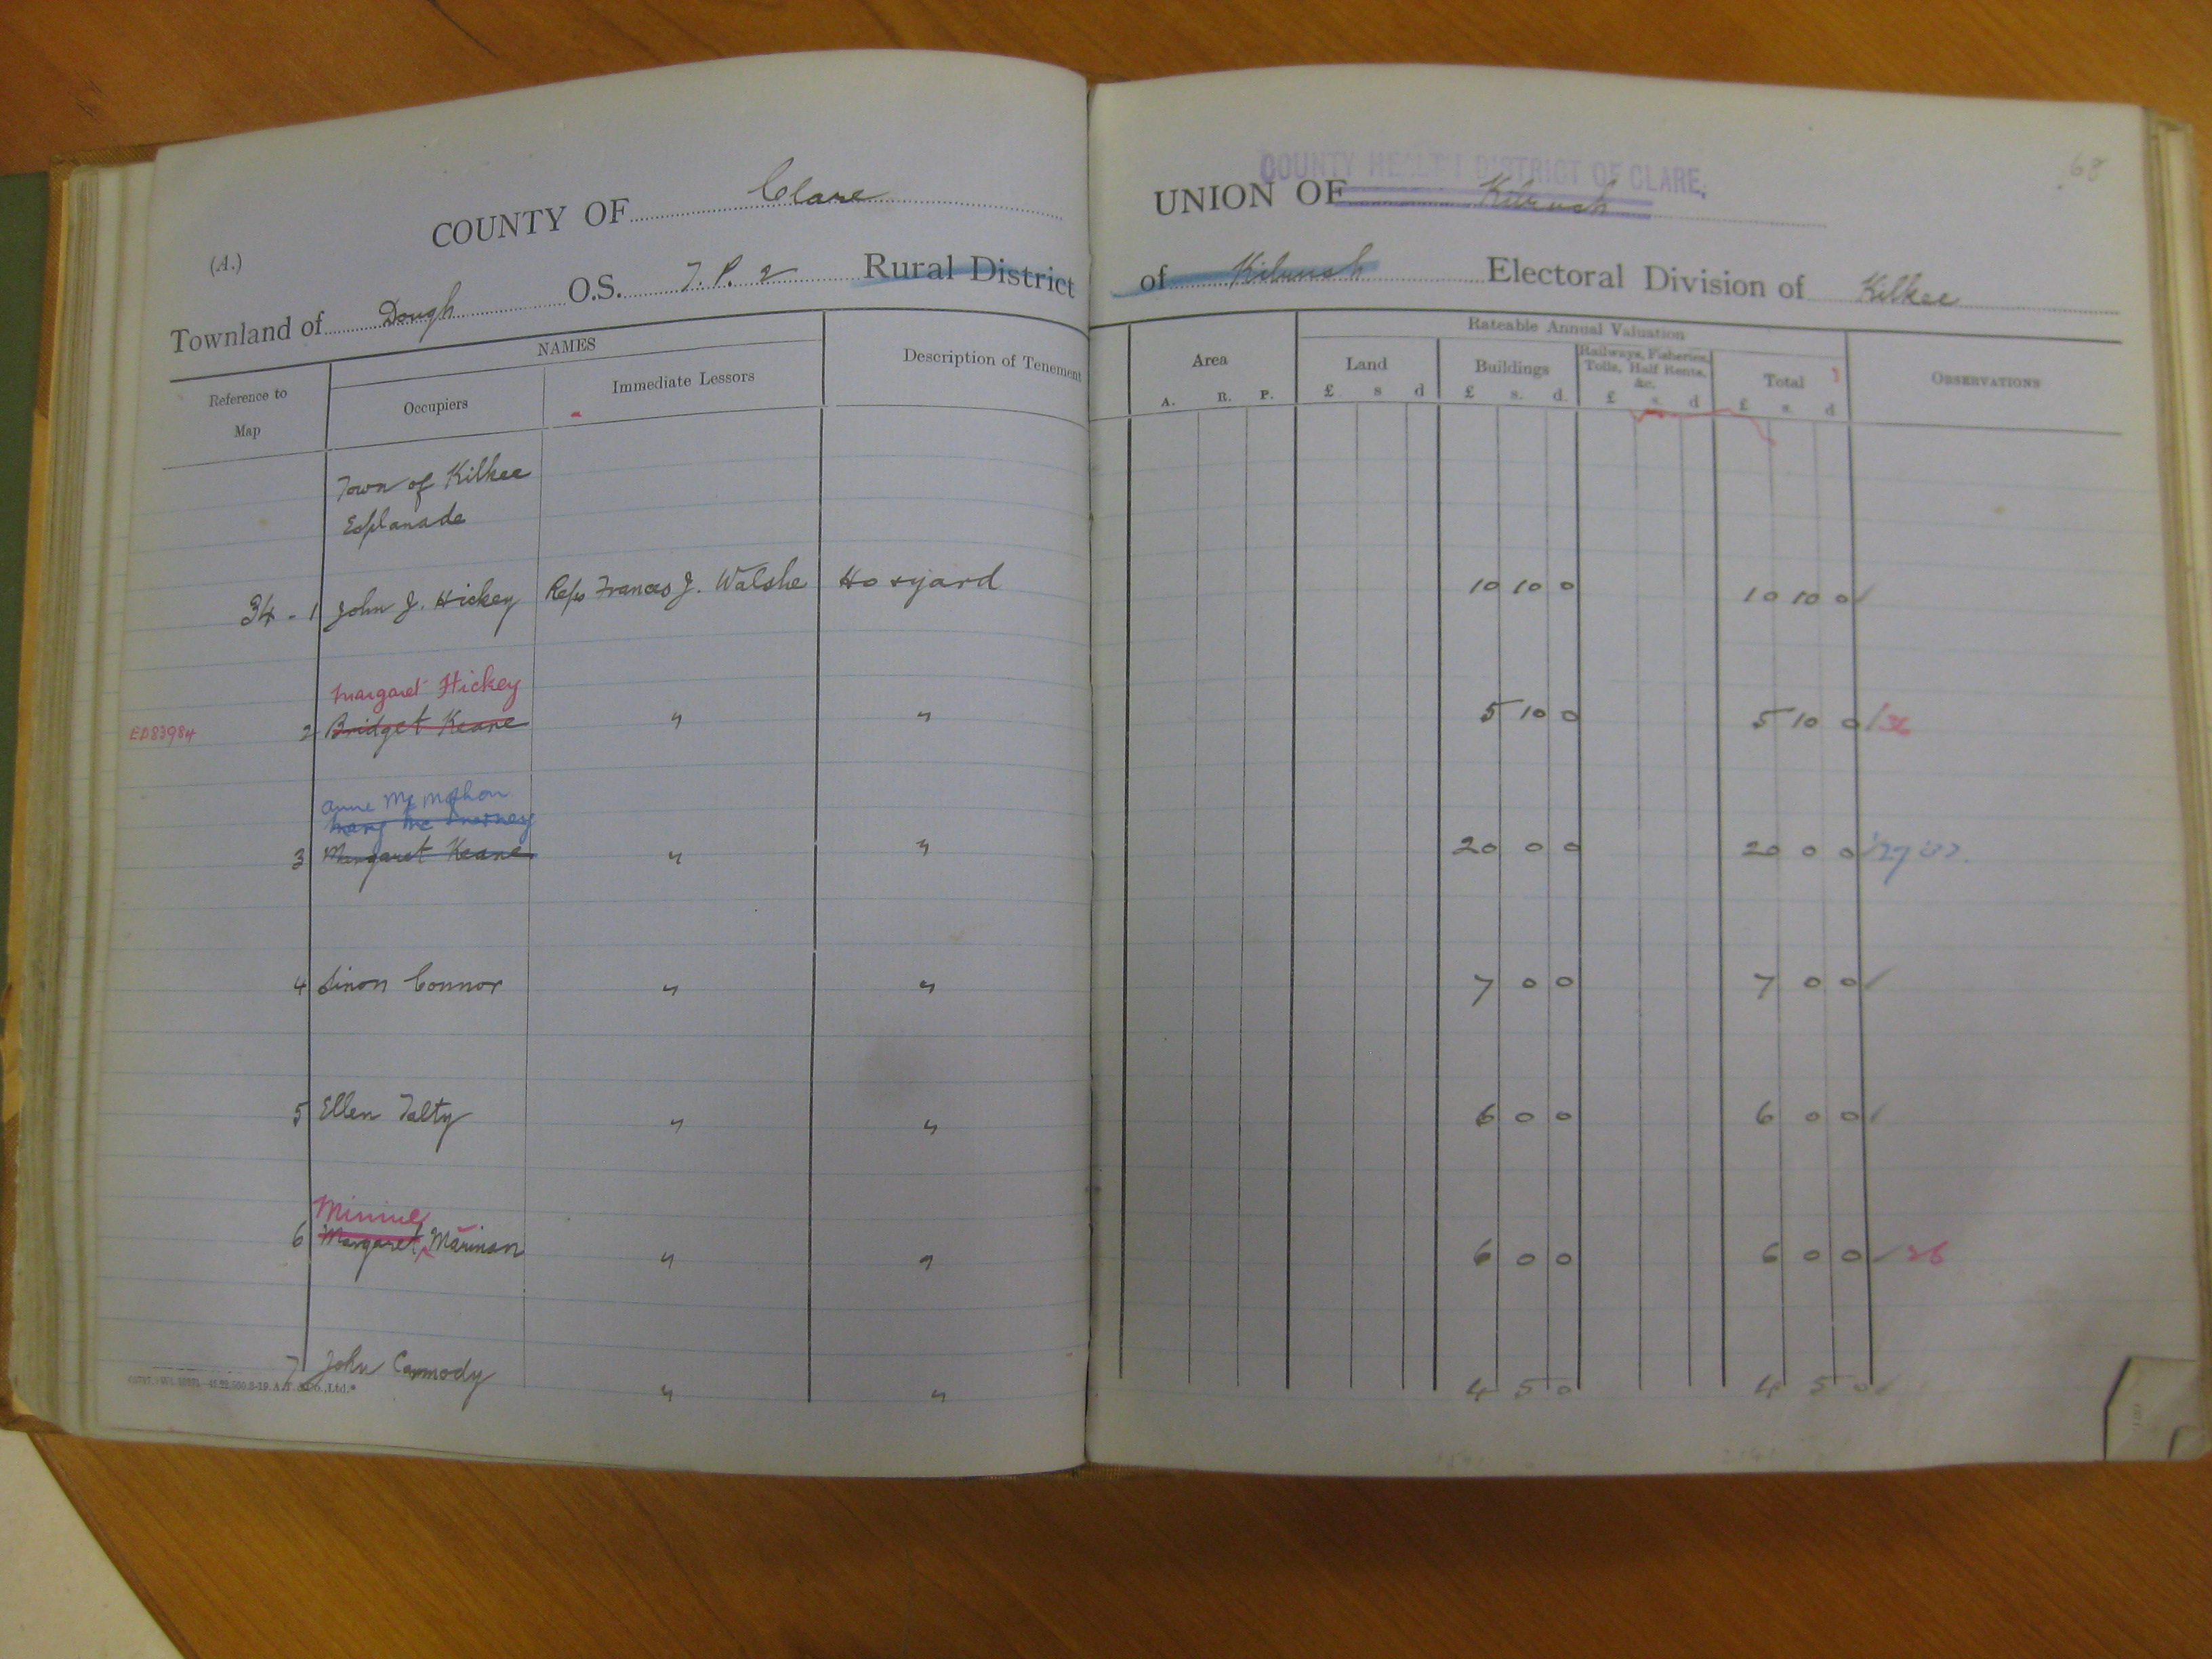 COUNTY OF Clare
(A.)
Townland of Dough O.S. T.P. 2 Rural District
NAMES
Reference to Map
Occupiers
Immediate Lessors
Description of Tenement
Town of Kilkee
Esplanade
34 - 1 John J. Hickey Reps Frances J. Walshe Ho & yard
Margaret Hickey
ED83984 2 Bridget Keane " "
Anne Mc Mahon
Mary Mc Inerney
3 Margaret Keane " "
4 Sinon Connor " "
5 Ellen Talty " "
Minnie
6 Margaret Marinan " "
7 John Carmody " "
68
COUNTY HEALTH DISTRICT OF CLARE.
UNION OF Kilrush
of Kilrush Electoral Division of Kilkee
Rateable Annual Valuation
Area
Land
Buildings
Railways, Fisheries, Tolls, Half Rents, &c.
Total
OBSERVATIONS
A. R. P. £ s d £ s. d. £ s. d £ s. d
10 10 0 10 10 0
5 10 0 5 10 0 36
20 0 0 20 0 0 '27
7 0 0 7 0 0
6 0 0 6 0 0
6 0 0 6 0 0 36
4 5 0 4 5 0